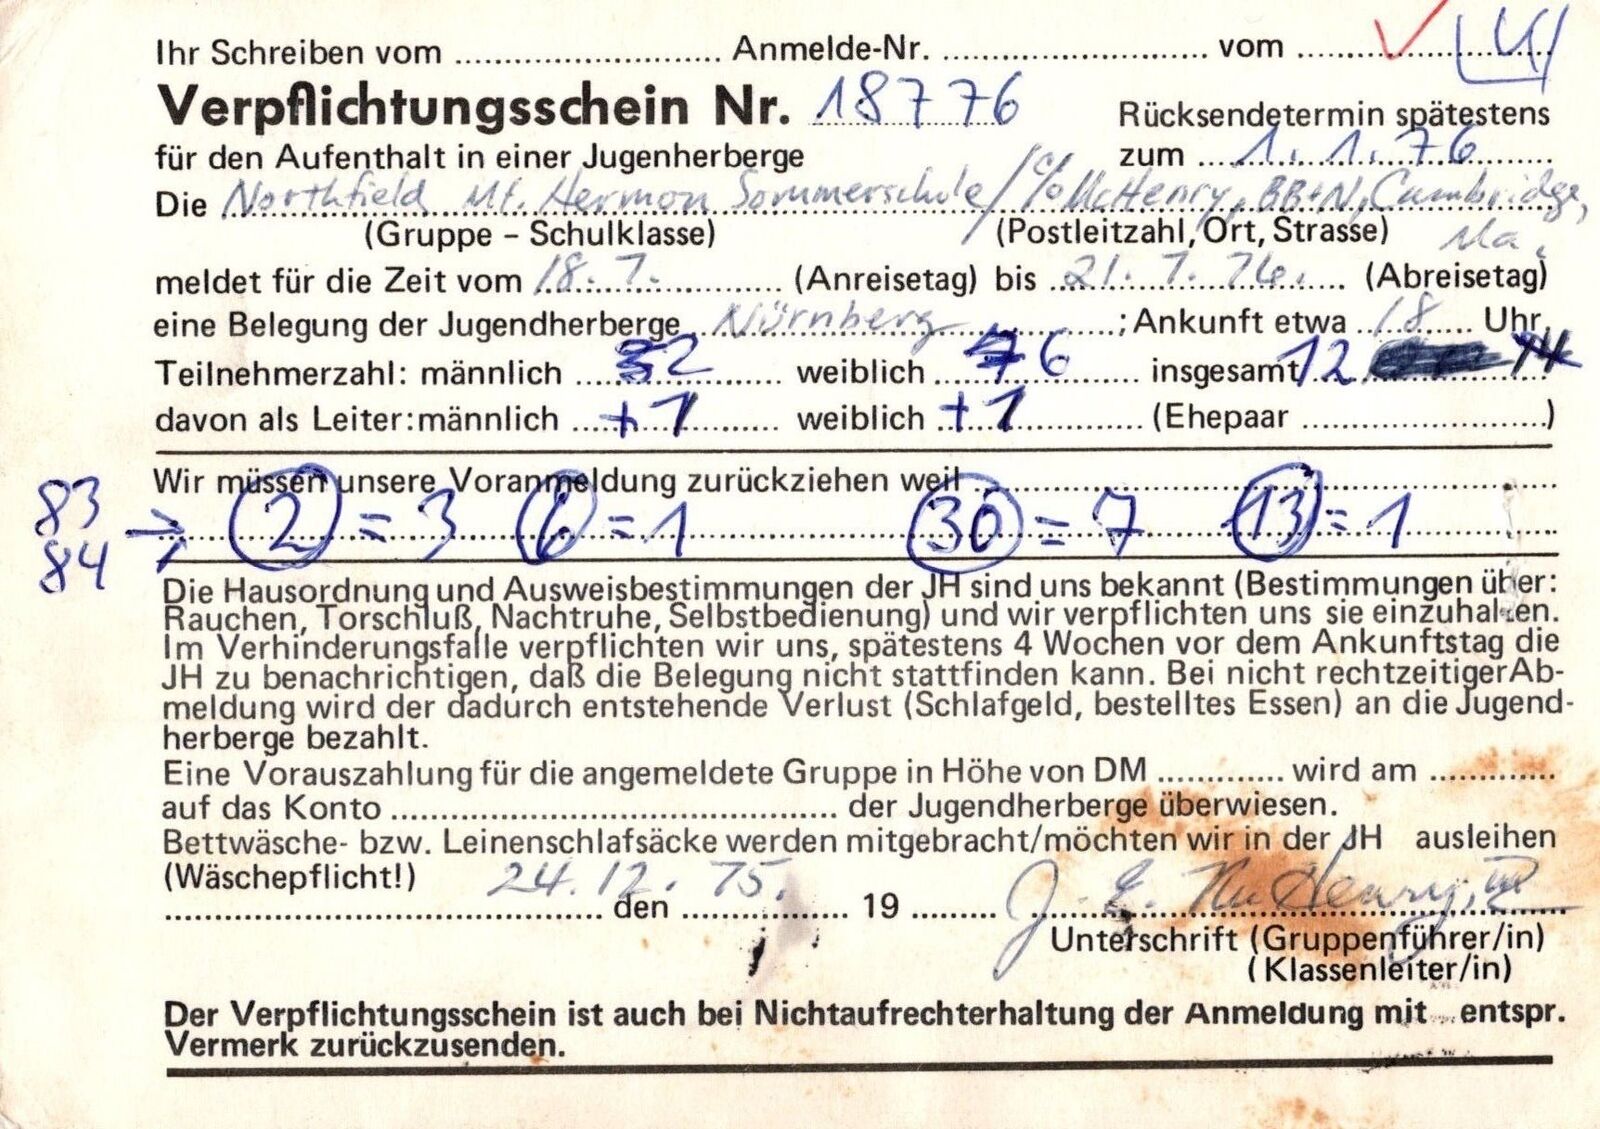 Ihr Schreiben vom ........................... Anmelde-Nr. ........................... vom ...........................
Verpflichtungsschein Nr. 18776
Rücksendetermin spätestens
für den Aufenthalt in einer Jugenherberge
zum 1. 1. 76
Die Northfield Mt. Hermon Sommerschule / c/o McHenry, BB+N, Cambridge,
(Gruppe – Schulklasse) (Postleitzahl, Ort, Strasse) Ma.
meldet für die Zeit vom 18. 7. (Anreisetag) bis 21. 7. 76. (Abreisetag)
eine Belegung der Jugendherberge Nürnberg ; Ankunft etwa 18 Uhr
Teilnehmerzahl: männlich 2 weiblich 6 insgesamt 12 14
davon als Leiter: männlich +1 weiblich +1 (Ehepaar ...........................)
Wir müssen unsere Voranmeldung zurückziehen weil ...........................
83
84 → 2 = 3 6 = 1 30 = 7 13 = 1
Die Hausordnung und Ausweisbestimmungen der JH sind uns bekannt (Bestimmungen über:
Rauchen, Torschluß, Nachtruhe, Selbstbedienung) und wir verpflichten uns sie einzuhalten.
Im Verhinderungsfalle verpflichten wir uns, spätestens 4 Wochen vor dem Ankunftstag die
JH zu benachrichtigen, daß die Belegung nicht stattfinden kann. Bei nicht rechtzeitiger Ab-
meldung wird der dadurch entstehende Verlust (Schlafgeld, bestelltes Essen) an die Jugend-
herberge bezahlt.
Eine Vorauszahlung für die angemeldete Gruppe in Höhe von DM ............. wird am .............
auf das Konto ........................................... der Jugendherberge überwiesen.
Bettwäsche- bzw. Leinenschlafsäcke werden mitgebracht/möchten wir in der JH ausleihen
(Wäschepflicht!) 24. 12. 75.
........................................... den ................. 19 ......... J. E. McHenry, III
Unterschrift (Gruppenführer/in)
(Klassenleiter/in)
Der Verpflichtungsschein ist auch bei Nichtaufrechterhaltung der Anmeldung mit entspr.
Vermerk zurückzusenden.